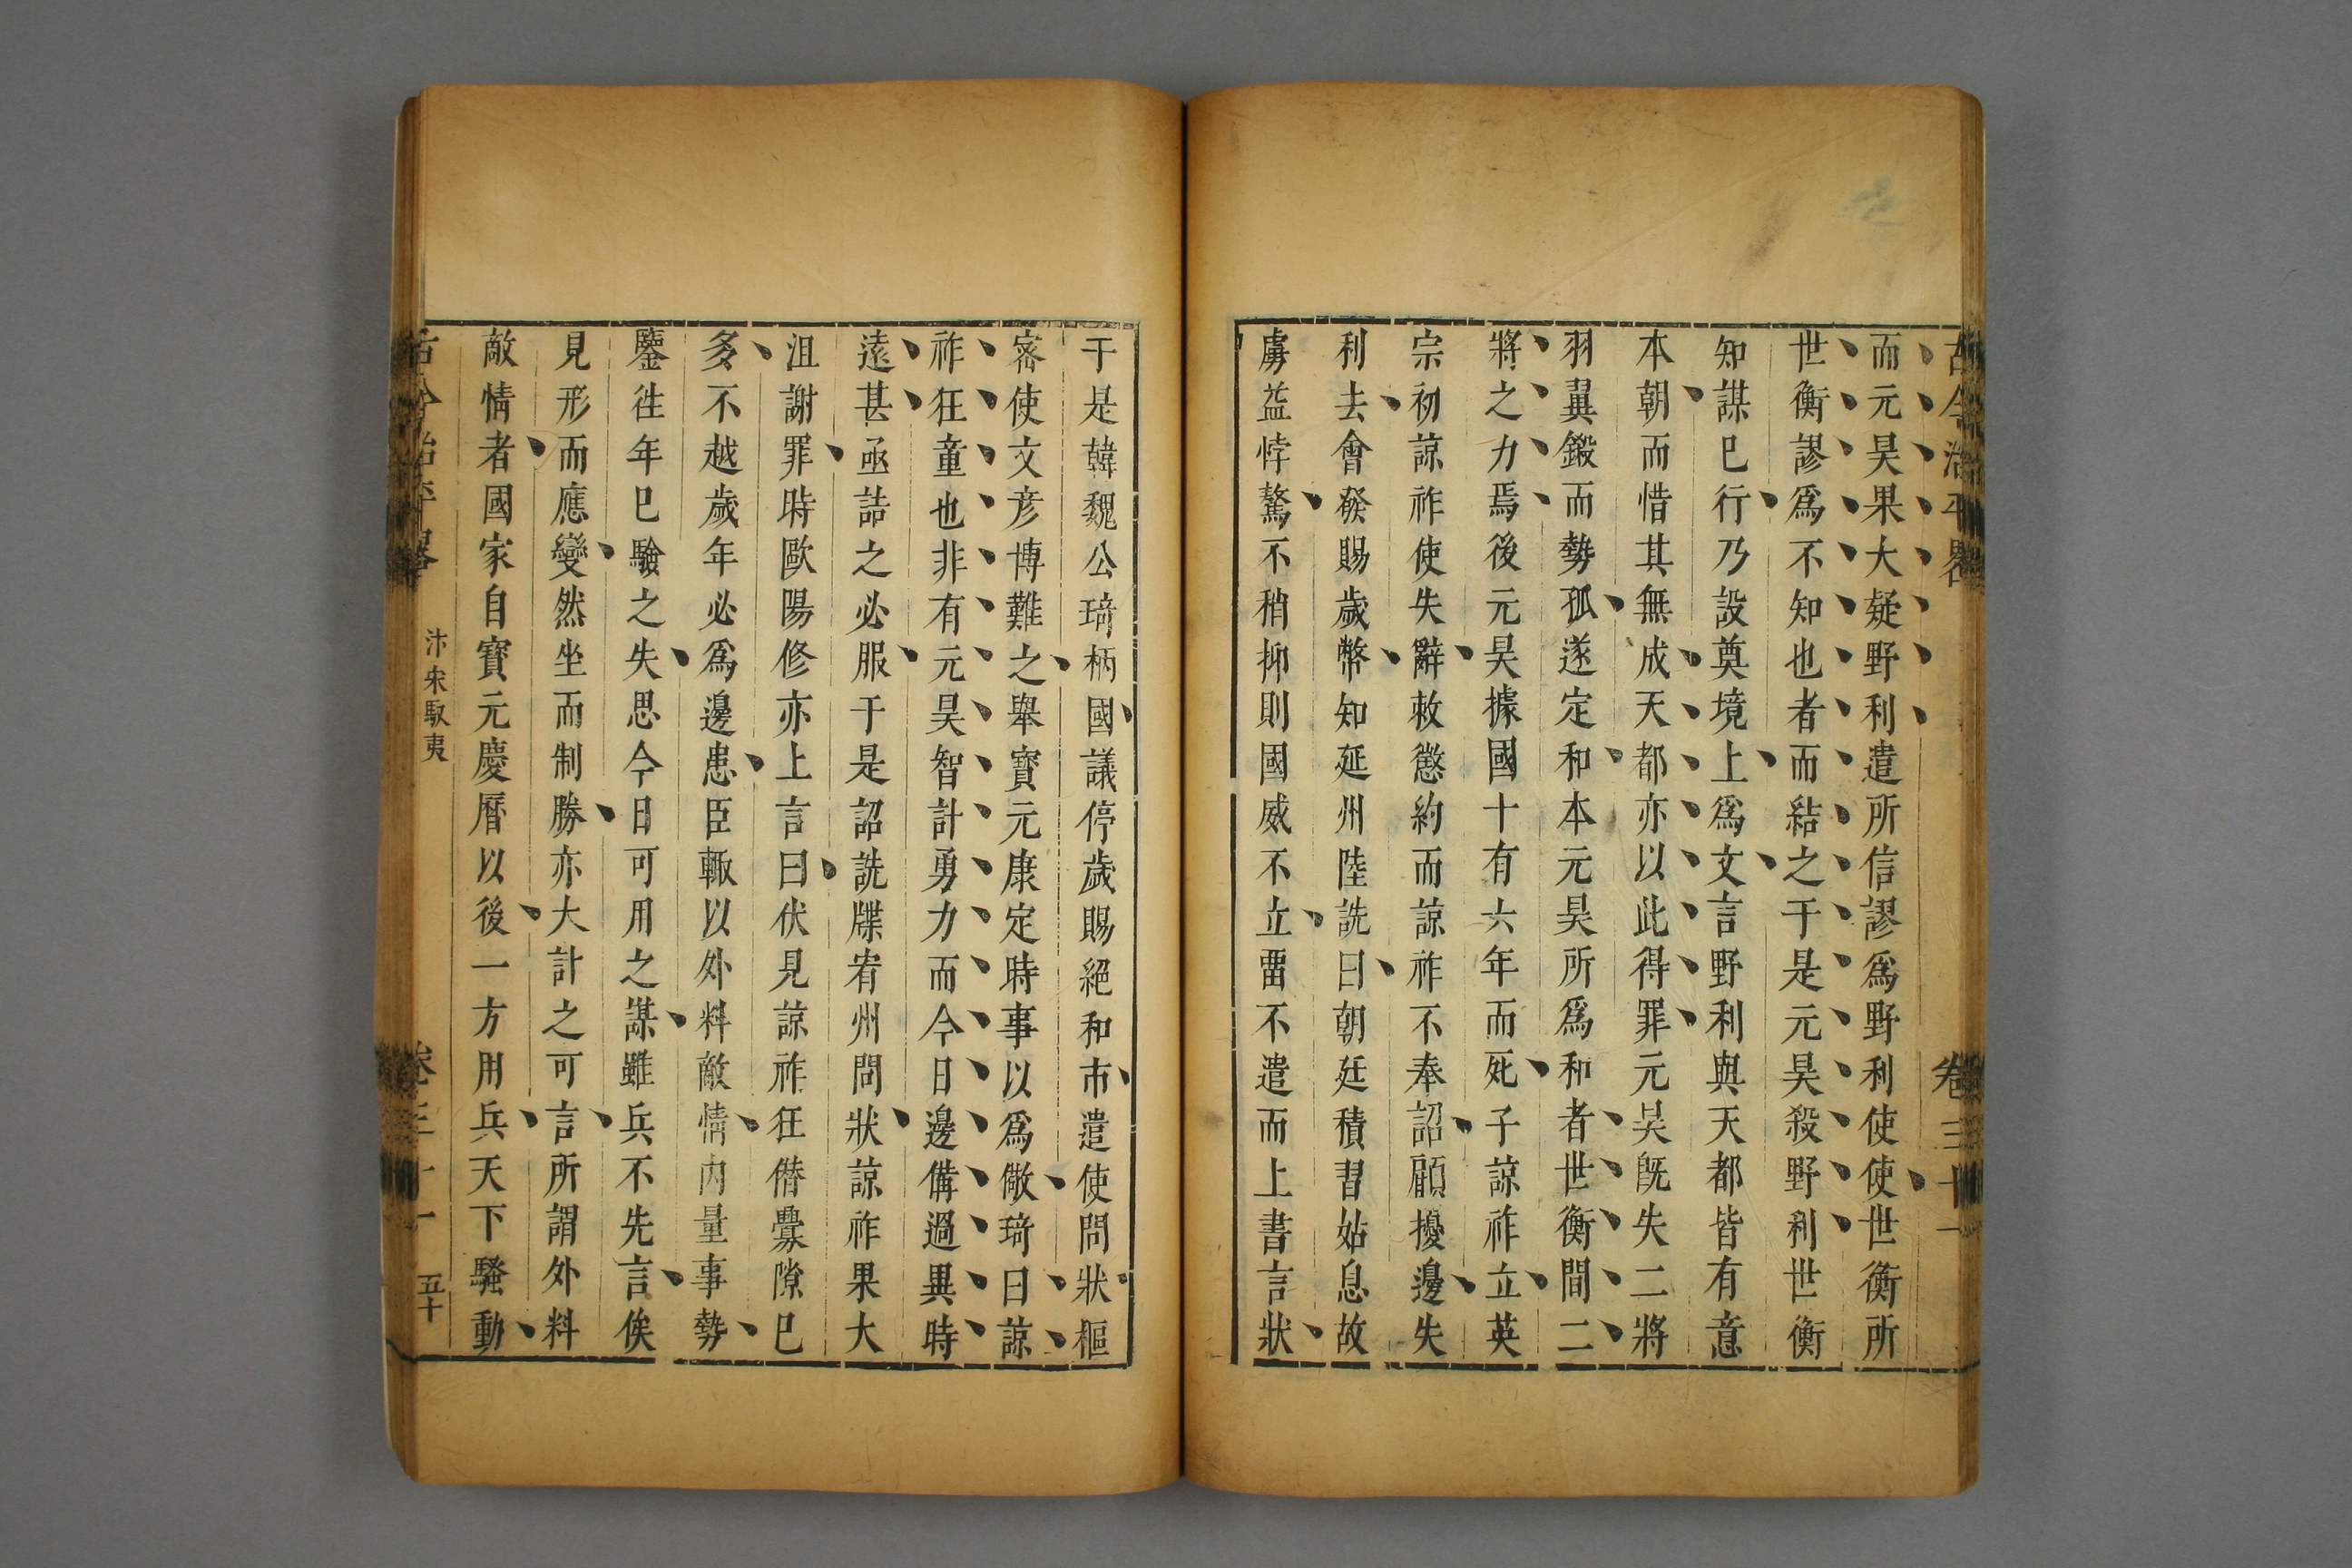 古今治平畧 卷三十一
而元昊果大疑野利遣所信謬爲野利使使世衡所
世衡謬爲不知也者而結之于是元昊殺野利世衡
知謀已行乃設奠境上爲文言野利與天都皆有意
本朝而惜其無成天都亦以此得罪元昊旣失二將
羽翼鍛而勢孤遂定和本元昊所爲和者世衡間二
將之力焉後元昊據國十有六年而死子諒祚立英
宗初諒祚使失辭敕懲約而諒祚不奉詔顧擾邊失
利去會發賜歲幣知延州陸詵曰朝廷積習姑息故
虜益悖驁不稍抑則國威不立畱不遣而上書言狀
于是韓魏公琦柄國議停歲賜絕和市遣使問狀樞
宻使文彦博難之舉寳元康定時事以爲儆琦曰諒
祚狂童也非有元昊智計勇力而今日邊備過異時
遠甚亟詰之必服于是詔詵牒宥州問狀諒祚果大
沮謝罪時歐陽修亦上言曰伏見諒祚狂僣釁隙已
多不越歲年必爲邊患臣輙以外料敵情内量事勢
鑒徃年已驗之失思今日可用之謀雖兵不先言俟
見形而應變然坐而制勝亦大計之可言所謂外料
敵情者國家自寳元慶曆以後一方用兵天下騷動
古今治平畧 汴宋馭夷 卷三十一 五十